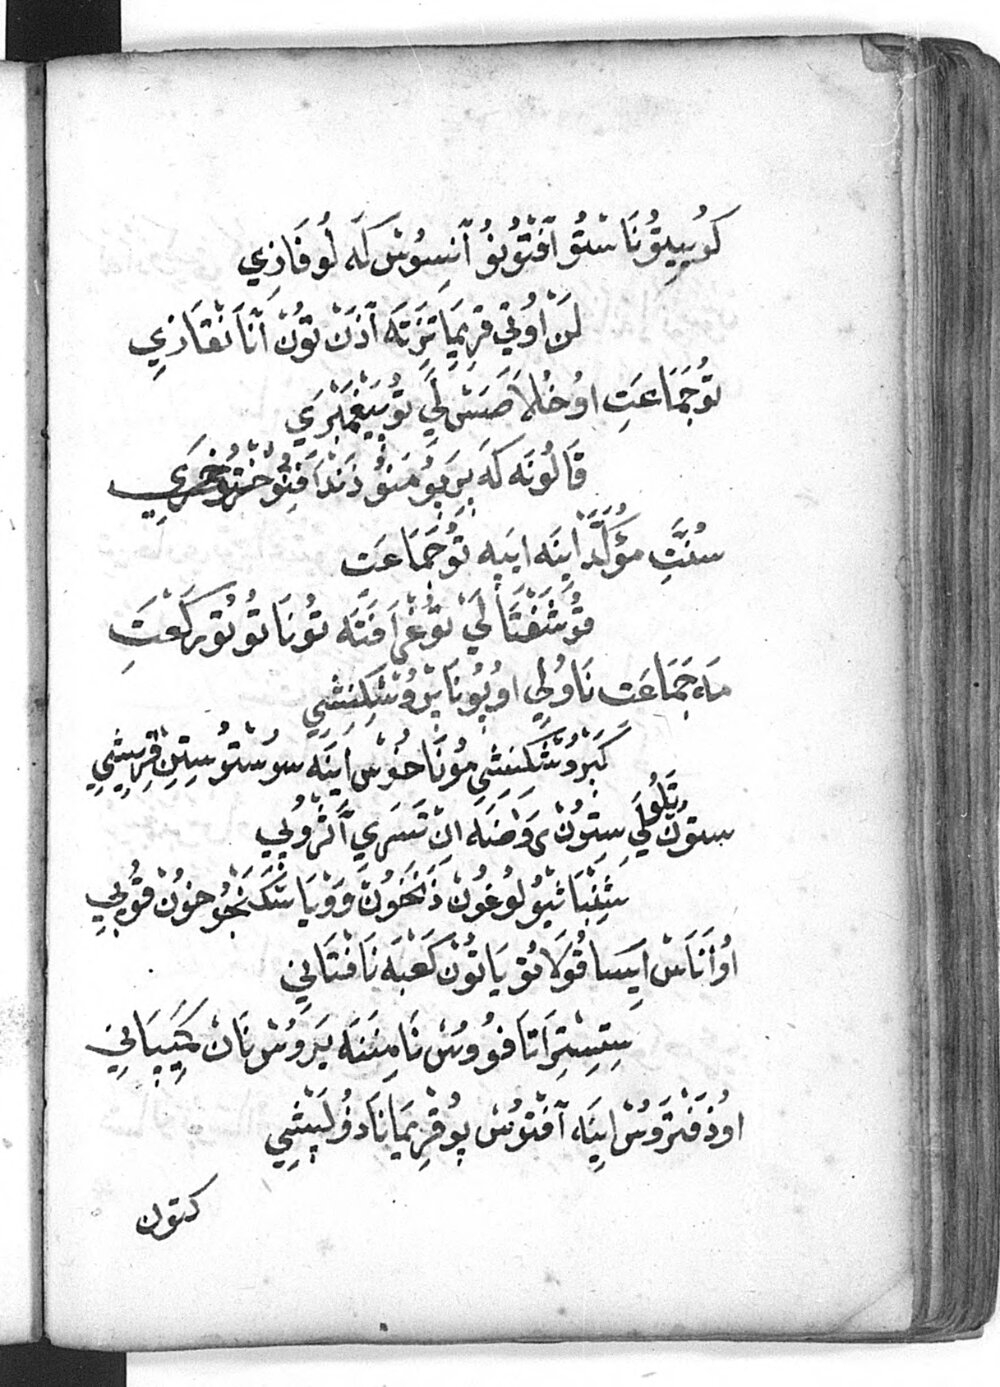 كُوبِيتُونَا سْتُو آفْتُونُو آنِسُوسْ كَه لُوفَازِي
لَنْ اوُتِي قْرِيمَا تِزَتَه آذَنْ تُونْ آنَا نْقَازِي
تُو جَمَاعَتِ اوُ خُلَاصَسْ لَي تُو پَيْغَمْبَرِي
قَالُونَه كَه بِرَبُو مَنُو ذَنْدَا فِنُو
سُنَّتِ مُؤَكَّدَ اينَه ايپَه تُو جَمَاعَت
قُوشَفْتَا لَي تُوغْرَافَتَه تُونَا تُو تُو رَكْعَتِ
مَه جَمَاعَت نَاوُلِي اوُپُونَا بْرُوشْكِنِشِي
كَبْرُوشْكِنِشِي مُونَاخُوسْ اينَه سُوسْتُو سْتِنْ قْرِيشِي
سْتُونْ تَلُولَي سِتُونْ رَوْضَه انْ تَسَرِي آتْرُولِي
شِنِبَاثِيُو لُوغُونْ ذَنْخُونْ وَوْيَا سْكَنْجُوخُونْ قُوبِي
اوُ آنَاسْ ايسَا قُولَا تُو يَا تُونْ كَعْبَه نَا فْتَانِي
سِتِسْتِرَاتَا فُووُسْ نَا مِنَنَه يَرُوسْ نَانْ كَيپَانِي
اوُذَفْتَرُوسْ اينَه آفْتُوسْ پُو قْرِيمَا نَا ذُولَپْشِي
كتون